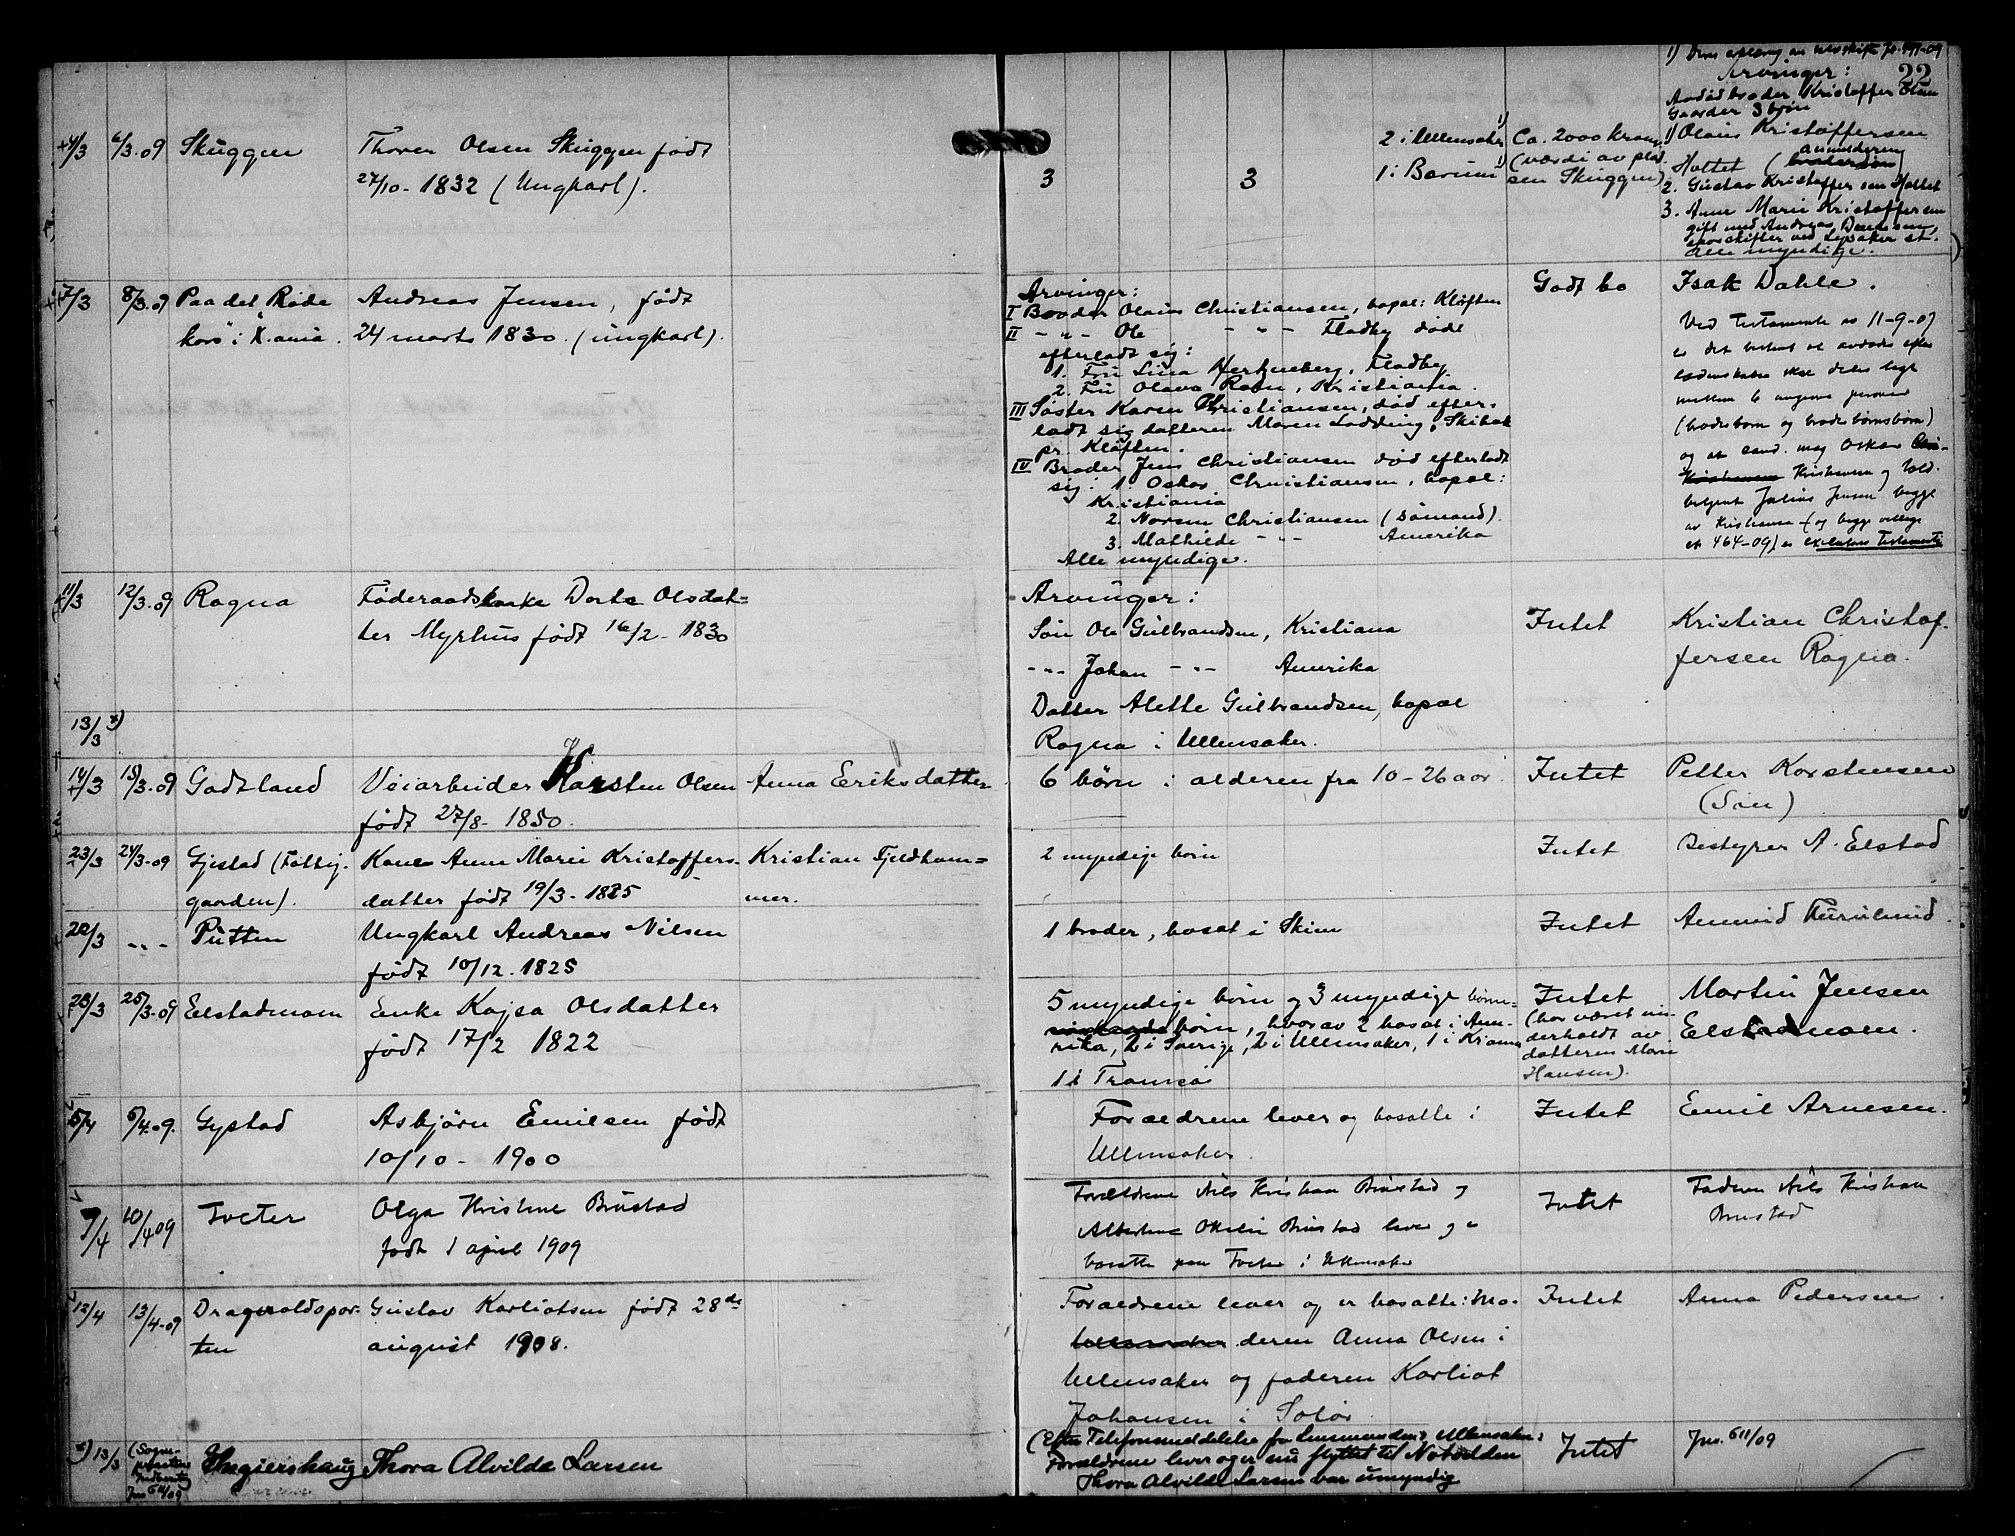 22
Arvinger:
Kristoffer Olsen
Gaarder 3 børn
4/3 6/3.09 Skuggen Thorer Olsen Skuggen født
27/10 - 1832 (Ungkarl).
3 3
2 i Ullensaker 1)
1 i Bærum 1)
Ca. 2000 kroner
(værdi av plas
sen Skuggen)
1) Olaus Kristoffersen
Holtet (anmelderen
2. Gustav Kristoffersen Holtet
3. Anne Marie Kristoffersen
gift med Andreas
ved Lysaker st.
Alle myndige.
7/3 8/3.09 Paa det "Røde
kors" i X.ania.
Andreas Jensen, født
24 marts 1830. (ungkarl).
Arvinger:
I Broder Olaus Christiansen, bopæl: Kløften
II - " - Ole - " - Fladby død
efterladt sig:
1. Fru Lina Hertzenberg, Fladby
2. Fru Olava Ravn, Kristiania.
III Søster Karen Christiansen, død efter-
ladt sig datteren Maren Lodding, Skibak
pr. Kløften.
IV Broder Jens Christiansen død efterladt
sig: 1. Oskar Christiansen, bopæl:
Kristiania
2. Norsen Christiansen (sømand).
3. Mathilde - " - Amerika
Alle myndige.
Godt bo
Isak Dahle.
Ved Testamente av 11-9-07
er det bestemt at avdødes efter
ladenskaber skal deles ligt
mellem 6 angivne personer
(broderbørn og broderbørnsbørn)
og at cand. mag Oskar
Kristiansen og told-
betjent Julius Jensen begge
av Kristiania (og begge villige
464-09) er
11/3 12/3.09 Ragna Føderaadsenke Dorte Olsdat=
ter Myrhus født 16/2 - 1830
Arvinger:
Søn Ole Gulbrandsen, Kristiania
- " - Johan - " - Amerika
Datter Alette Gulbrandsen, bopæl
Ragna i Ullensaker.
Intet
Kristian Christof-
fersen Ragna.
13/3 x)
14/3 15/3.09 Godtland Veiarbeider Karsten Olsen Anna Eriksdatter
født 27/8 - 1850.
6 børn i alderen fra 10-26 aar. Intet Petter Karstensen
(Søn)
23/3 24/3-09 Gjestad (Fattig-
gaarden).
Kone Anne Marie Kristoffers-
datter født 19/3 - 1825
Kristian Fjeldham=
mer.
2 myndige børn Intet Bestyrer A. Elstad
20/3 - " - Putten Ungkarl Andreas Nilsen
født 10/12. 1825
1 broder, bosat i Skien Intet Amund Furulund.
23/3 25/3.09 Eelstadmoen Enke Kajsa Olsdatter
født 17/2 1822
5 myndige børn og 3 myndige børne=
børn, hvorav 2 bosat i Ame-
rika, 2 i Sverige, 2 i Ullensaker, 1 i Kr.ania
1 i Tromsø
Intet
(har været un-
derholdt av
datteren Marie
Hansen).
Martin Jensen
Elstadmoen.
5/4 6/4.09. Gystad Asbjørn Emilsen født
10/10 - 1900
Forældrene lever og bosatte i
Ullensaker.
Intet Emil Arnesen.
7/4 10/4 09 Tveter Olga Kristine Brustad
født 1 april 1909
Forældrene Nils Kristian Brustad og
Albertine Otilie Brustad lever og er
bosatte paa Tveter i Ullensaker
Intet
Faderen Nils Kristian
Brustad
12/4 13/4-09 Dragvoldspor-
ten
Gustav Karliotsen født 28de
august 1908.
Forældrene lever og er bosatte: Mo-
deren Anna Olsen i
Ullensaker og faderen Karliot
Johansen i Solør.
Intet Anna Pedersen.
x) 13/3 (Sogne-
presten
Indberetg
Jno 611/09
Ingiershaug Thora Alvilde Larsen
(Efter Telefonmeddelelse fra Lensmanden i Ullensaker:
Forældrene lever og er nu flyttet til Notodden
Thora Alvilde Larsen var umyndig
Intet Jno. 611/09